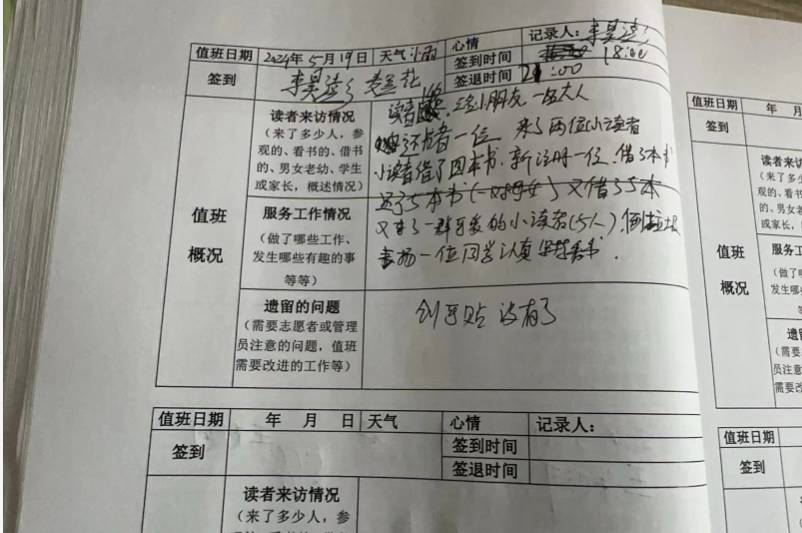 值班日期 2024年5月19日 天气 小雨 心情 记录人：李昊
签到 李昊 签到时间 18:00
签退时间 21:00
读者来访情况
（来了多少人，参
观的、看书的、借书
的、男女老幼、学生
或家长，概述情况）
小朋友，一名大人
还书者一位．来了两位小读者
小读者借了四本书．新注册一位．借了5本书
还了5本书 又借了5本
值班
概况
服务工作情况
（做了哪些工作、
发生哪些有趣的事
等等）
又来了一群可爱的小读者（5人）．倒垃圾
表扬一位同学认真看书．
遗留的问题
（需要志愿者或管理
员注意的问题，值班
需要改进的工作等）
创可贴 没有了
值班日期 年 月 日 天气 心情 记录人：
签到 签到时间
签退时间
读者来访情况
（来了多少人，参
值班日期 年 月
签到
读者来访
（来了多少
观的、看
的、男女
或家长，
值班
概况
服务工
（做了
发生哪
遗
（需要
员注意
需要改
值班日期
签到